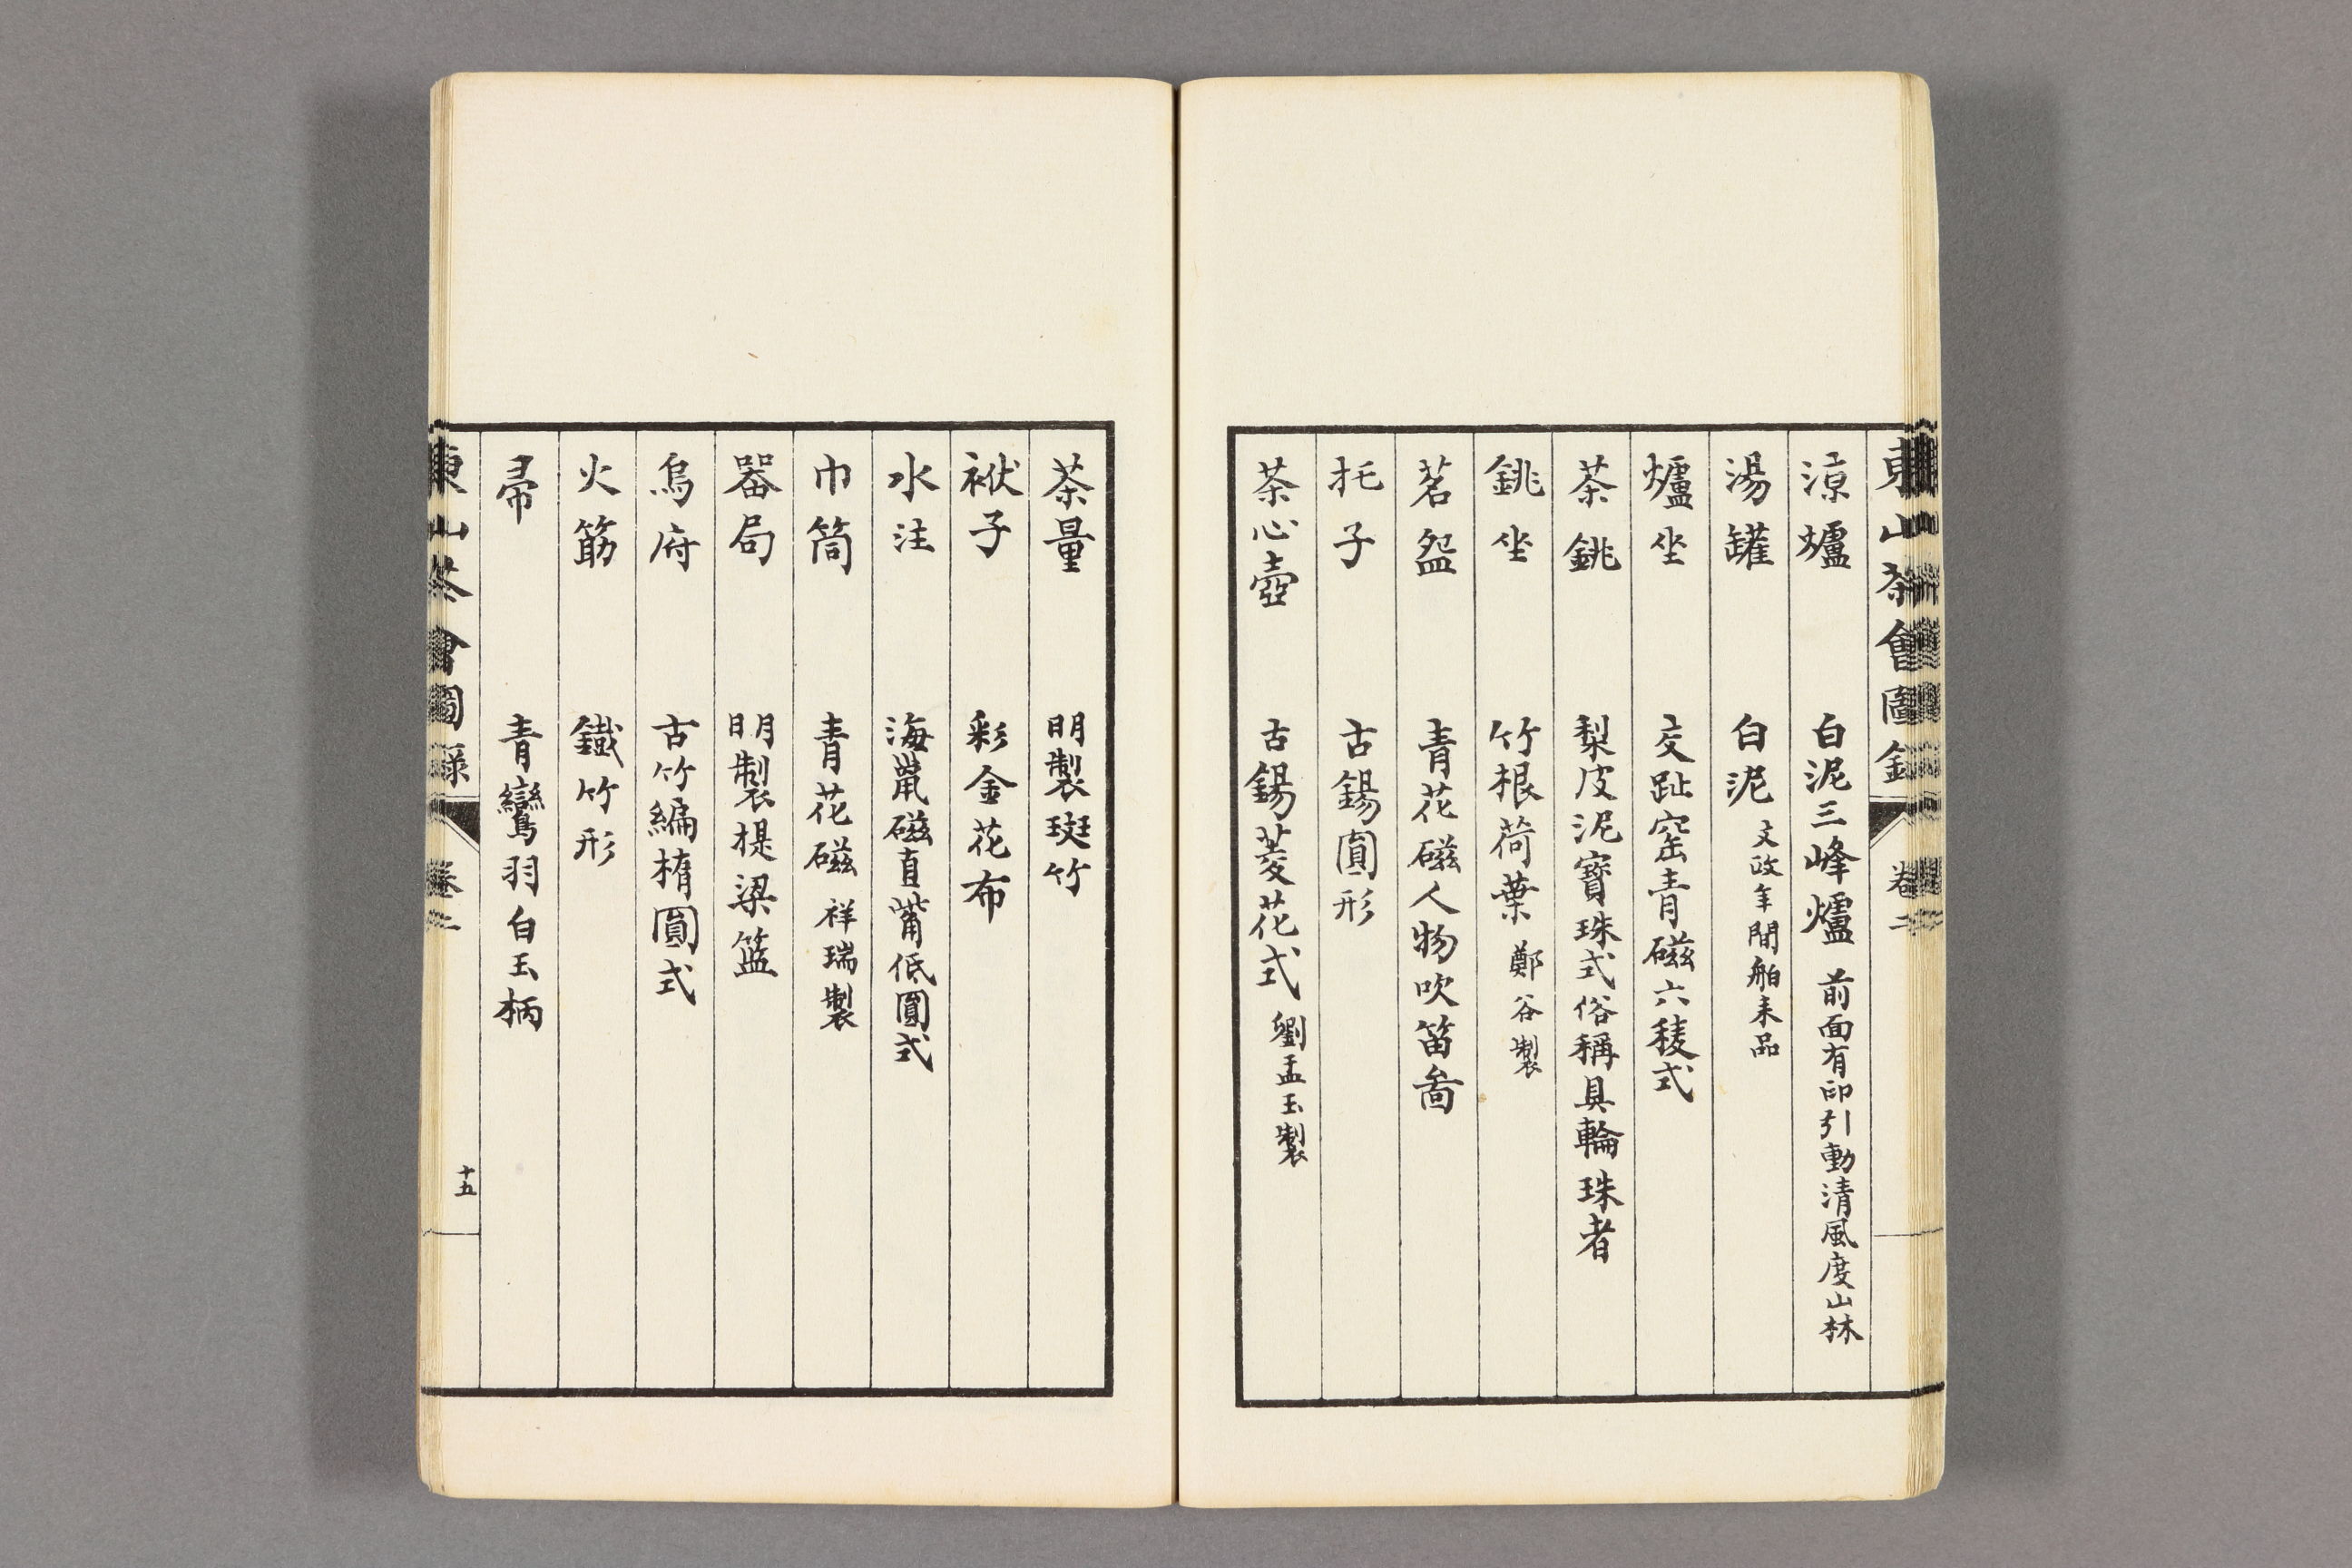 東山茶會圖錄 卷二
涼爐 白泥三峰爐 前面有印引動清風度山林
湯罐 白泥 文政年間舶来品
爐坐 交趾窑青磁六稜式
茶銚 梨皮泥寶珠式俗稱具輪珠者
銚坐 竹根荷葉 鄭谷製
茗盌 青花磁人物吹笛啚
托子 古錫圓形
茶心壺 古錫菱花式 劉孟玉製
茶量 明製斑竹
袱子 彩金花布
水注 海鼠磁直嘴低圓式
巾筒 青花磁 祥瑞製
器局 明製提梁籃
烏府 古竹編楕圓式
火筯 鐵竹形
帚 青鸞羽白玉柄
東山茶會圖錄 卷二 十五